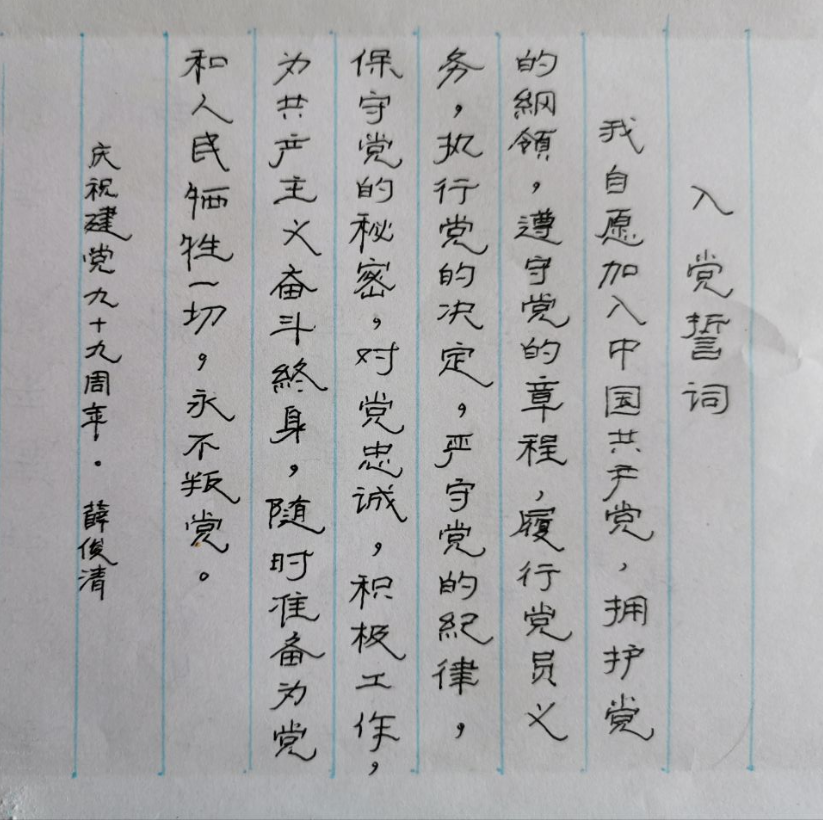 入党誓词
我自愿加入中国共产党，拥护党
的綱領，遵守党的章程，履行党员义
务，执行党的决定，严守党的紀律，
保守党的秘密，对党忠诚，积极工作，
为共产主义奋斗終身，随时准备为党
和人民牺牲一切，永不叛党。
庆祝建党九十九周年。薛俊清